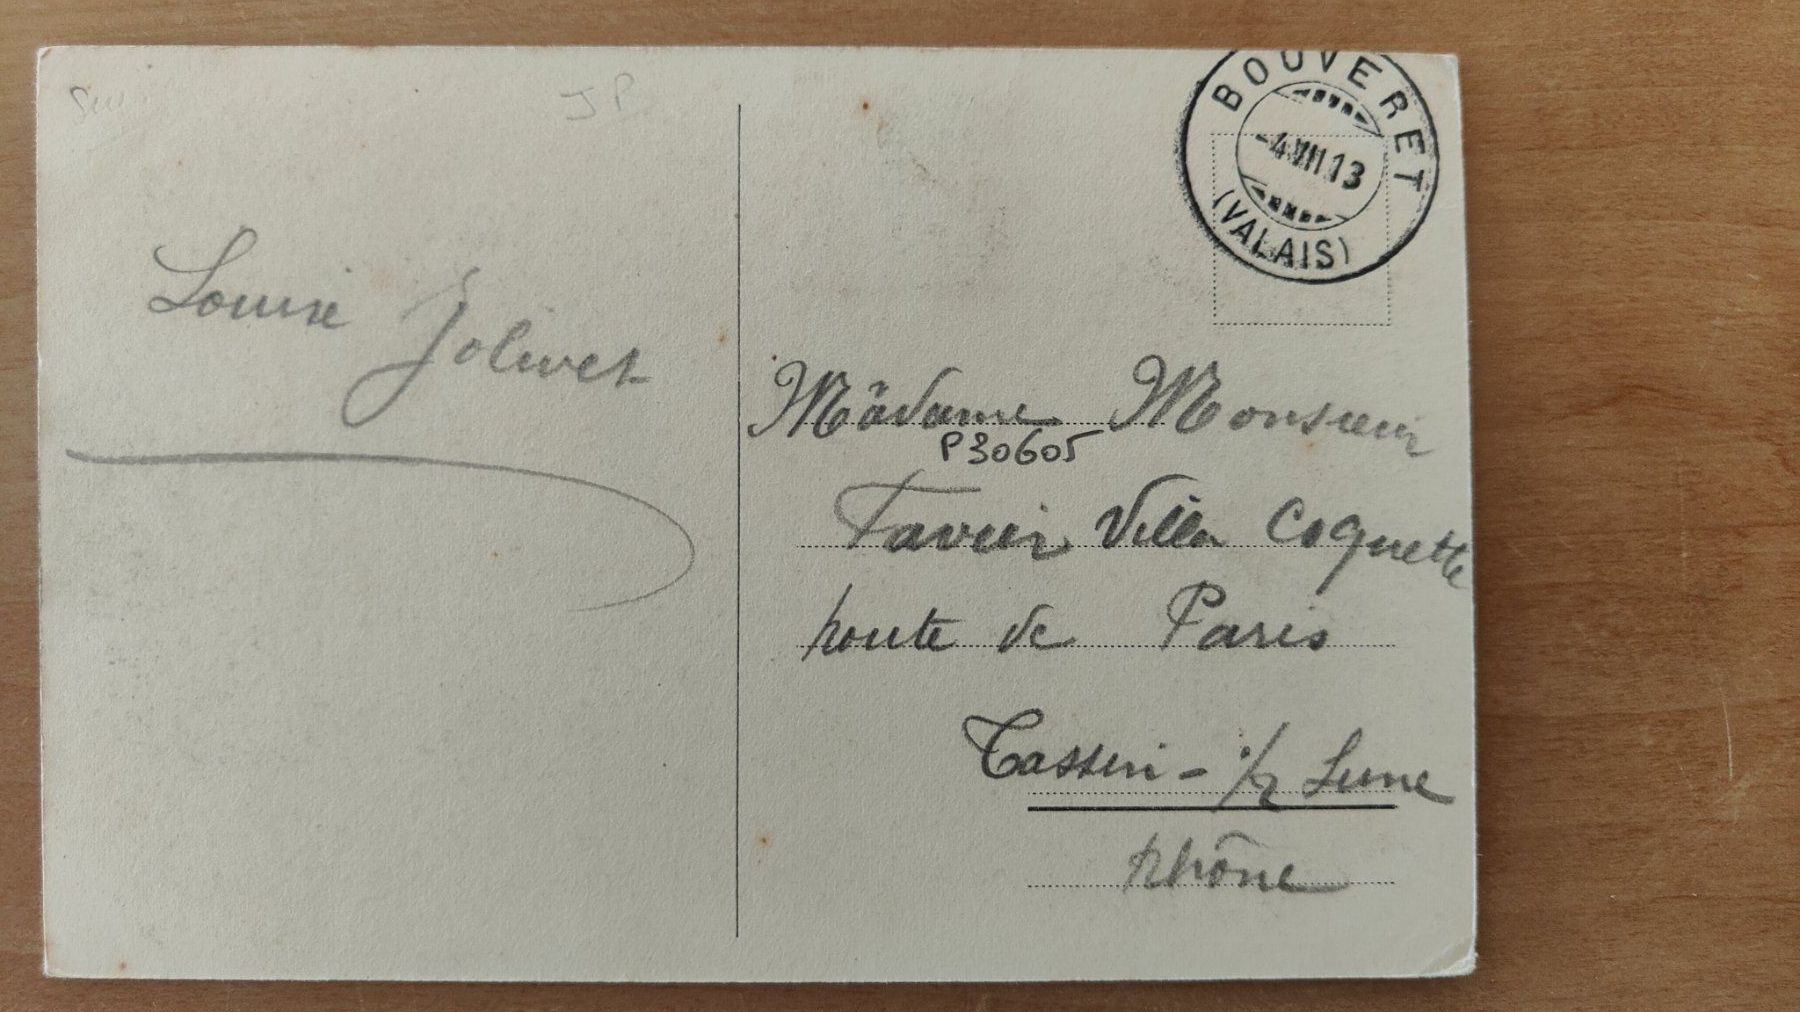 JP
BOUVERET
-4.VII.13
(VALAIS)
Louise Jolivet
Mâdame Monsieur
P30605
Favier Villa Coquette
route de Paris
Tassin - s/r Lune
Rhône